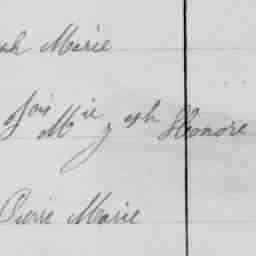 ph Marie
fois Mie Jph Honoré
Pierre Marie